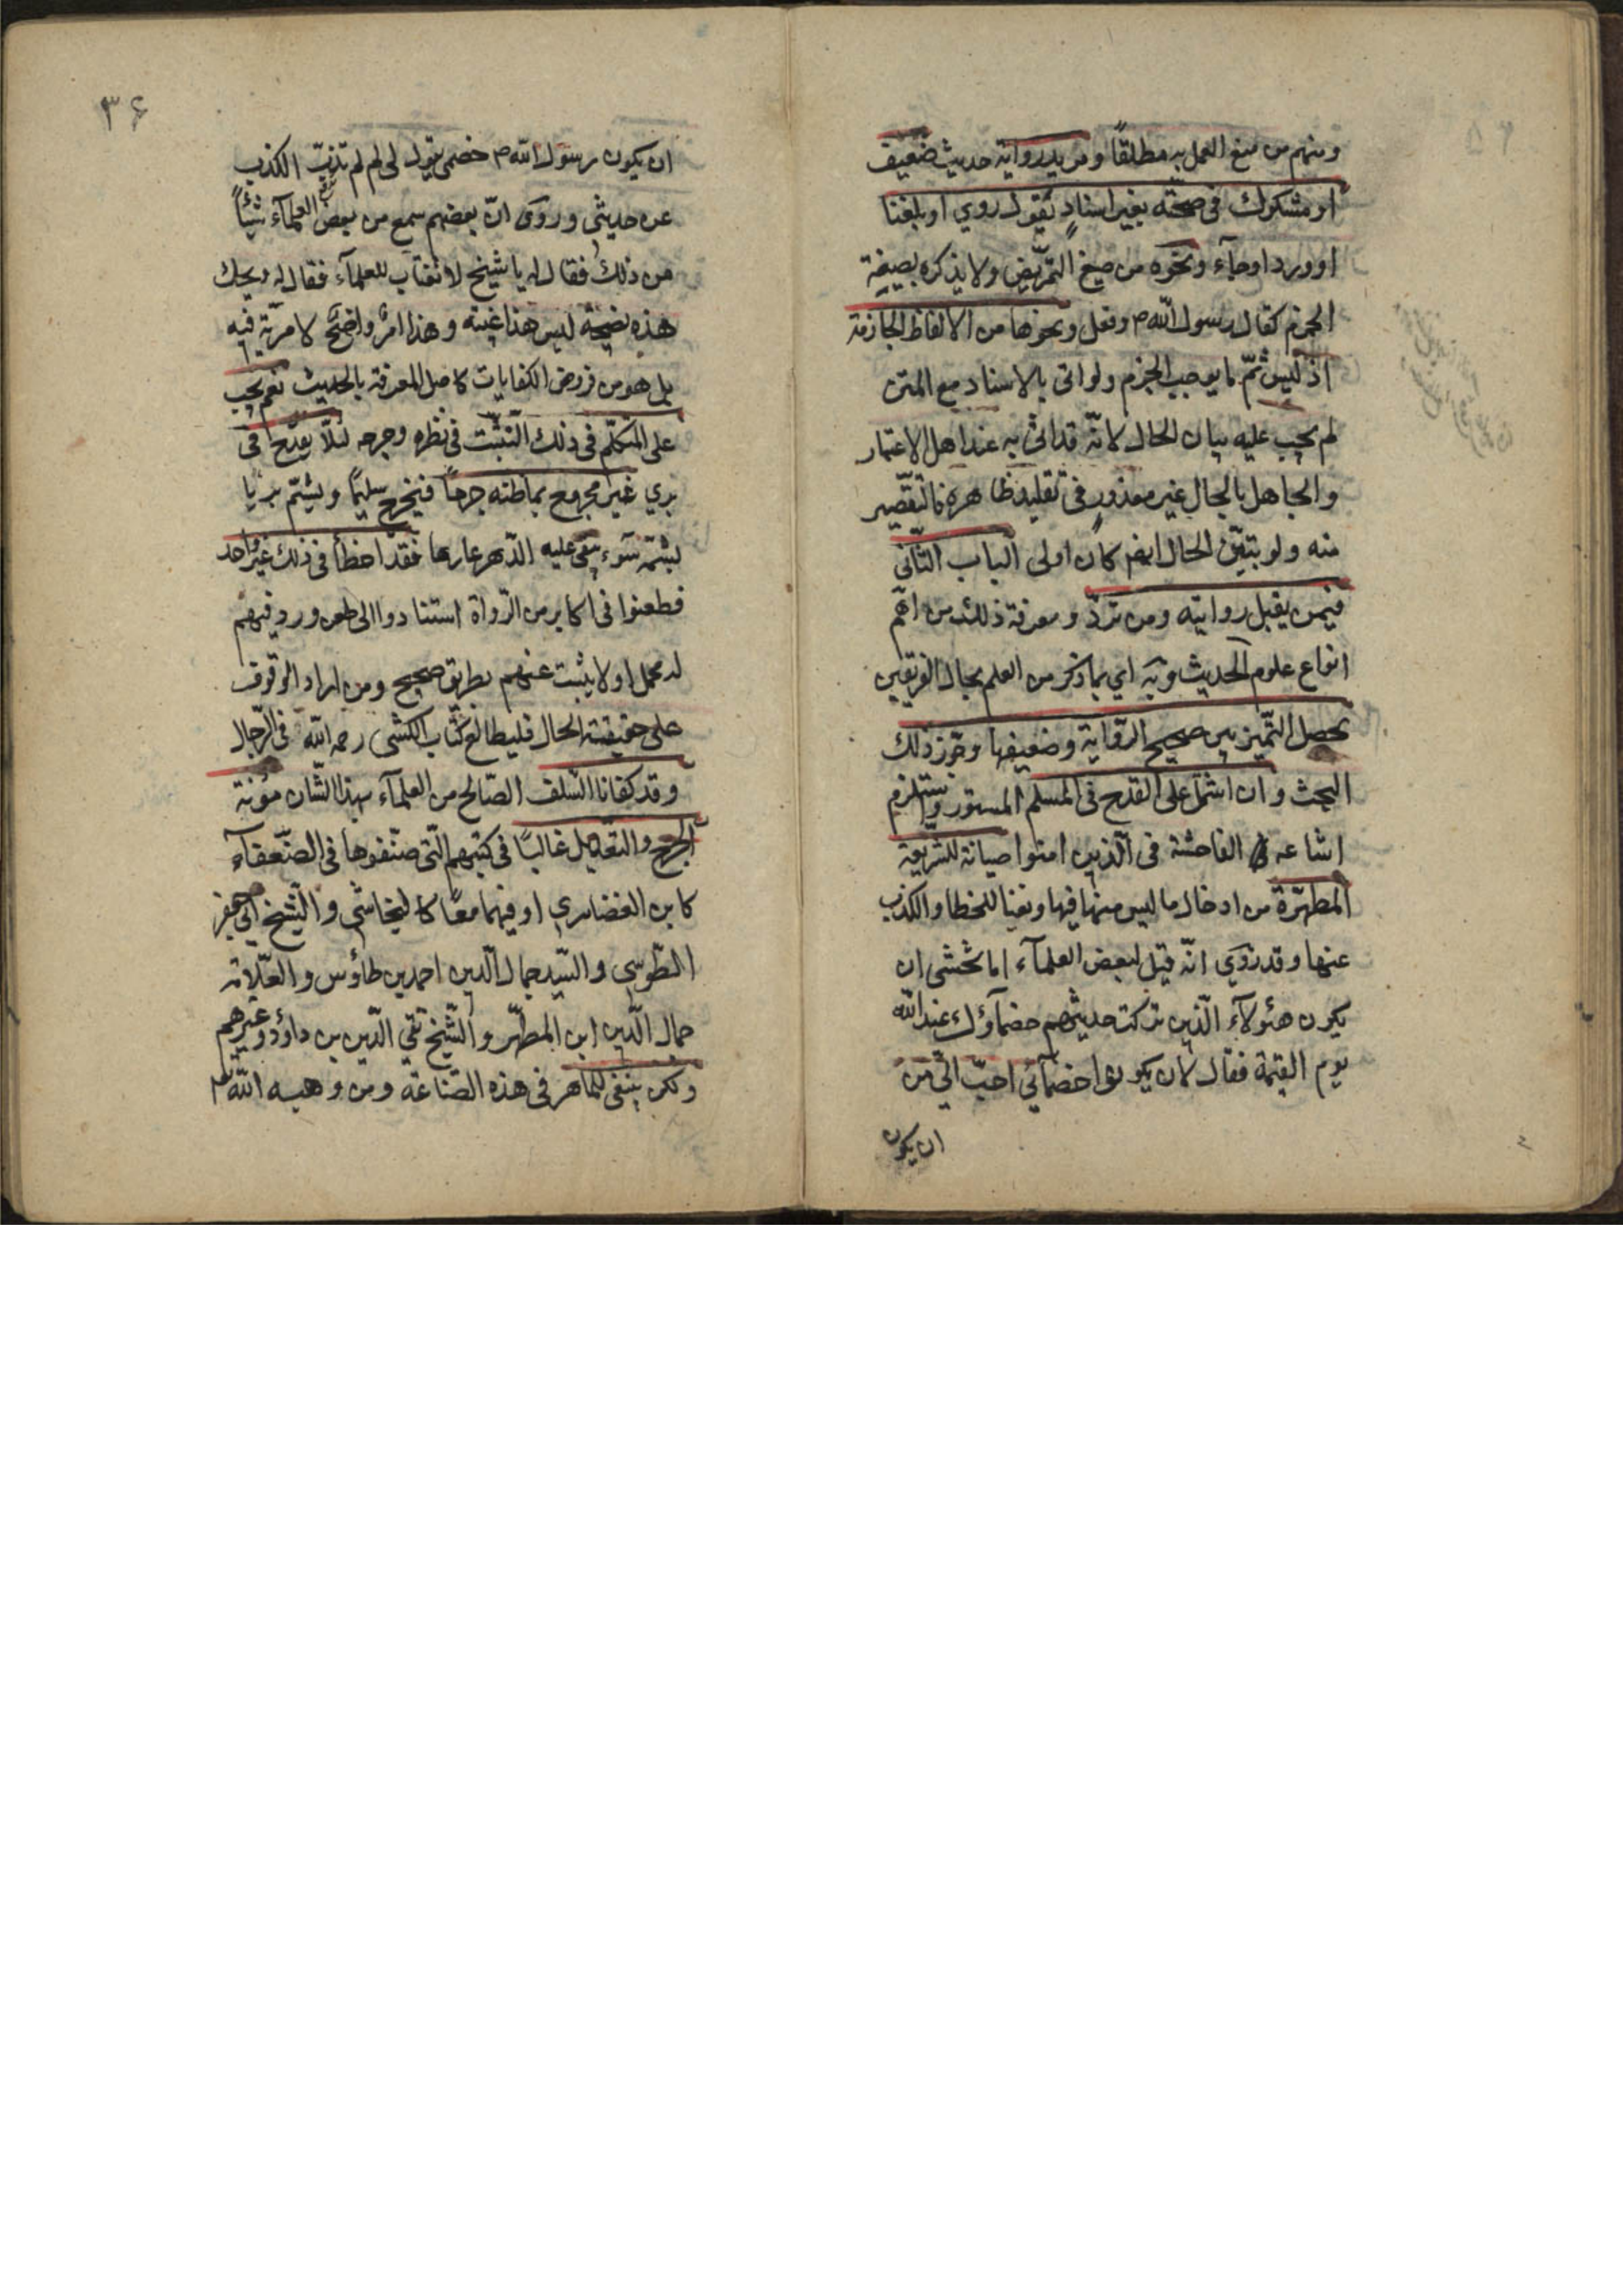 ومنهم من منع العمل به مطلقاً ومريد رواية حديث ضعيف
او مشكوك في صحته بغير اسناد يقول روي او بلغنا
او ورد او جآء ونحوه من صيغ التمريض ولا يذكره بصيغة
الجزم كقال رسول الله ص وفعل ونحوها من الالفاظ الجازمة
اذ ليس ثمّ ما يوجب الجزم ولو اتى بالاسناد مع المتن
لم يجب عليه بيان الحال لانّه قد اتى به عند اهل الاعتبار
والجاهل بالحال غير معذور في تقليد ظاهره فالتقصير
منه ولو بيّن الحال ايضم كان اولى الباب الثّاني
فيمن يقبل روايته ومن تردّ ومعرفة ذلك من اهمّ
انواع علوم الحديث وبه اي بما ذكر من العلم بحال الفريقين
يحصل التّميز بين صحيح الرّواية وضعيفها وجوّز ذلك
البحث وان اشتمل على القدح في المسلم المستور واستلزم
اشاعه الفاحشة في الّذين امنوا صيانة للشّريعة
المطهّرة من ادخال ما ليس منها فيها ونفيا للخطا والكذب
عنها وقد روي انّه قيل لبعض العلمآء اما تخشى ان
يكون هئولآء الّذين تركت حديثهم خصمآؤك عند الله
يوم القيمة فقال لان يكونوا خصمائي احبّ اليّ من
ان يكون
٣۶
ان يكون رسول الله ص خصمي يقول لي لم لم تذبّ الكذب
عن حديثي وروى انّ بعضهم سمع من بعض العلمآء شيئاً
من ذلك فقال له يا شيخ لا تغتاب للعلمآء فقال له ويحك
هذه نصيحة ليس هذا غيبة وهذا امر واضح لا مرية فيه
بل هو من فروض الكفايات كاصل المعرفة بالحديث نعم يجب
على المتكلّم في ذلك التثبّت في نظره وجرحه لئلّا يقدح في
بري غير مجروح بما ظنه جرحاً فيخرج سليماً ويشتم بريا
بشتمة سوء يبقى عليه الدّهر عارها فقد اخطأ في ذلك غير واحد
فطعنوا في اكابر من الرّواة استنادوا الى طعن ورد فيهم
له محمل او لا يثبت عنهم بطريق صحيح ومن اراد الوقوف
على حقيقة الحال فليطالع كتاب الكشي رحمه الله في الرّجال
وقد كفانا السّلف الصّالح من العلمآء بهذا الشان مؤنة
الجرح والتعديل غالباً في كتبهم الّتي صنّفوها في الضّعفآء
كابن الغضايري او فيهما معًا كالنجاشي والشّيخ ابي جعفر
الطّوسي والسّيد جمال الّدين احمد بن طاؤس والعلّامة
جمال الّدين ابن المطهّر والشّيخ تقي الّدين بن داؤد وغيرهم
ولكن ينبغي للماهر في هذه الصّناعة ومن وهبه الله